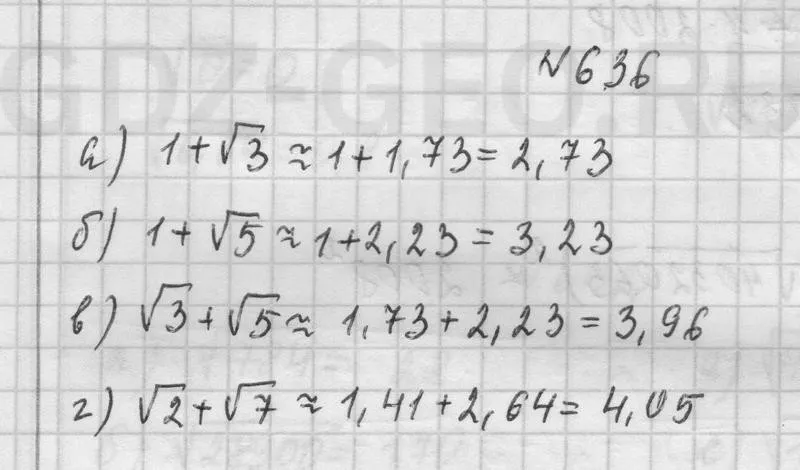 GDZ-GEO.R
№ 636
а) 1 + √3 ≈ 1 + 1,73 = 2,73
б) 1 + √5 ≈ 1 + 2,23 = 3,23
в) √3 + √5 ≈ 1,73 + 2,23 = 3,96
г) √2 + √7 ≈ 1,41 + 2,64 = 4,05